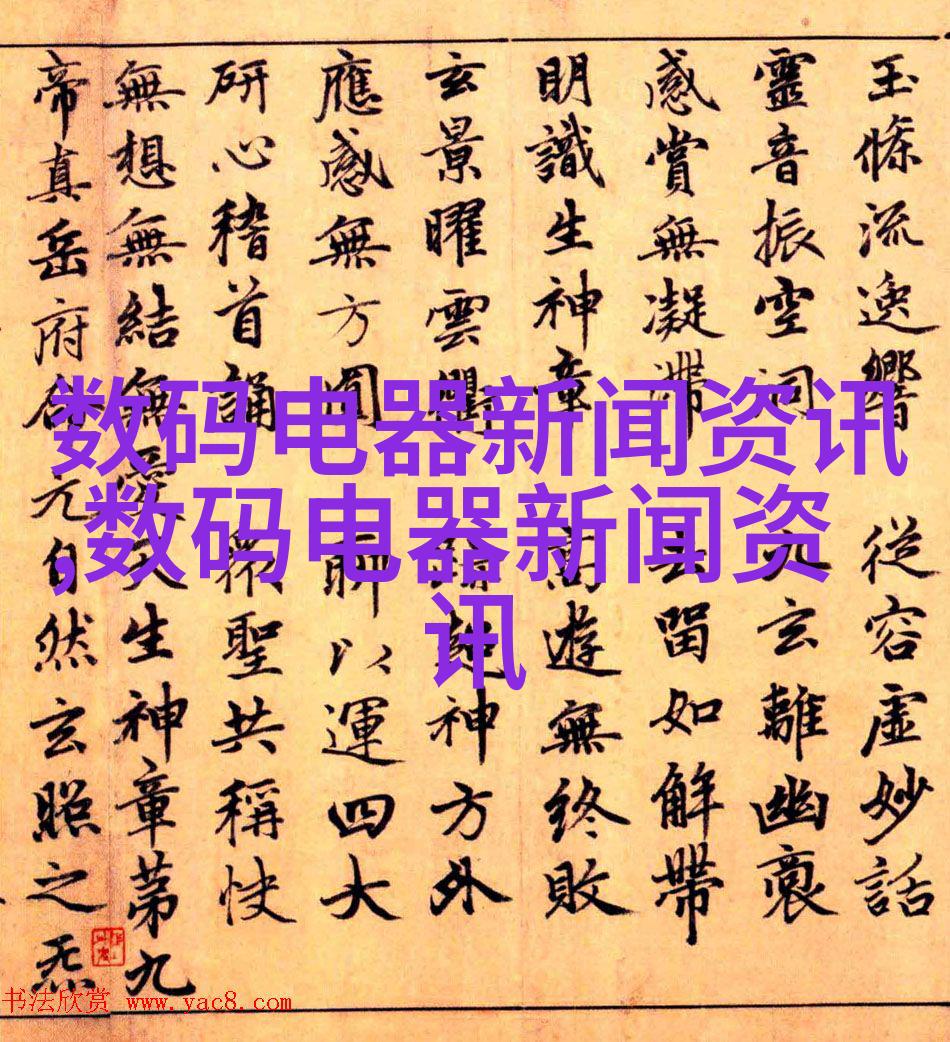 玉條流逸響 從容虛妙話
靈音振空洞 九玄離幽
感賞無凝滯 去留如解帶
明識生神章 高遊無終敗
玄景曜雲 超神方外
應感無方圓 聊以運四大
研心稽首誦 聖共稱快
無想無結無愛天生神章第九
帝真岳府命元自然玄照之炁
数码电器新闻资讯
,数码电器新闻资
讯
书法欣赏 www.yac8.com